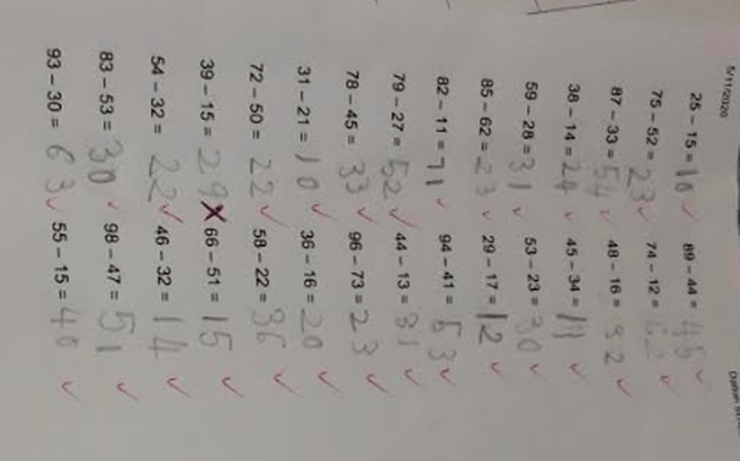 5/11/2020
25 – 15 = 10 ✓ 89 – 44 = 45 ✓
75 – 52 = 23 ✓ 74 – 12 = 62 ✓
87 – 33 = 54 ✓ 48 – 16 = 32 ✓
38 – 14 = 24 ✓ 45 – 34 = 11 ✓
59 – 28 = 31 ✓ 53 – 23 = 30 ✓
85 – 62 = 23 ✓ 29 – 17 = 12 ✓
82 – 11 = 71 ✓ 94 – 41 = 53 ✓
79 – 27 = 52 ✓ 44 – 13 = 31 ✓
78 – 45 = 33 ✓ 96 – 73 = 23 ✓
31 – 21 = 10 ✓ 36 – 16 = 20 ✓
72 – 50 = 22 ✓ 58 – 22 = 36 ✓
39 – 15 = 29 ✗ 66 – 51 = 15 ✓
54 – 32 = 22 ✓ 46 – 32 = 14 ✓
83 – 53 = 30 ✓ 98 – 47 = 51 ✓
93 – 30 = 63 ✓ 55 – 15 = 40 ✓